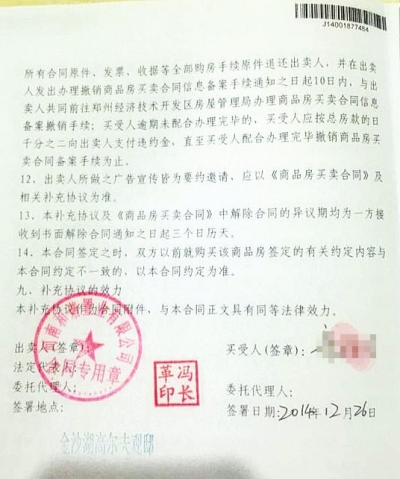 J14001877484
所有合同原件、发票、收据等全部购房手续原件退还出卖人，并在出卖
人发出办理撤销商品房买卖合同信息备案手续通知之日起10日内，与出
卖人共同前往郑州经济技术开发区房屋管理局办理商品房买卖合同信息
备案撤销手续；买受人逾期未配合办理完毕的，买受人应按总房款的日
千分之二向出卖人支付违约金，直至买受人配合办理完毕撤销商品房买
卖合同备案手续为止。
12．出卖人所做之广告宣传皆为要约邀请，应以《商品房买卖合同》及
相关补充协议为准。
13．本补充协议及《商品房买卖合同》中解除合同的异议期均为一方接
收到书面解除合同通知之日起三个日历天。
14．本合同签定之时，双方以前就购买该商品房签定的有关约定内容与
本合同约定不一致的，以本合同约定为准。
九、补充协议的效力
本补充协议作为合同附件，与本合同正文具有同等法律效力。
出卖人(签章)：
买受人（签章）：
法定代表人：
委托代理人；
委托代理人：
签署地点：
签署日期：2014年12月26日
置业有限公司
合同专用章
冯长革印
金沙湖高尔夫观邸